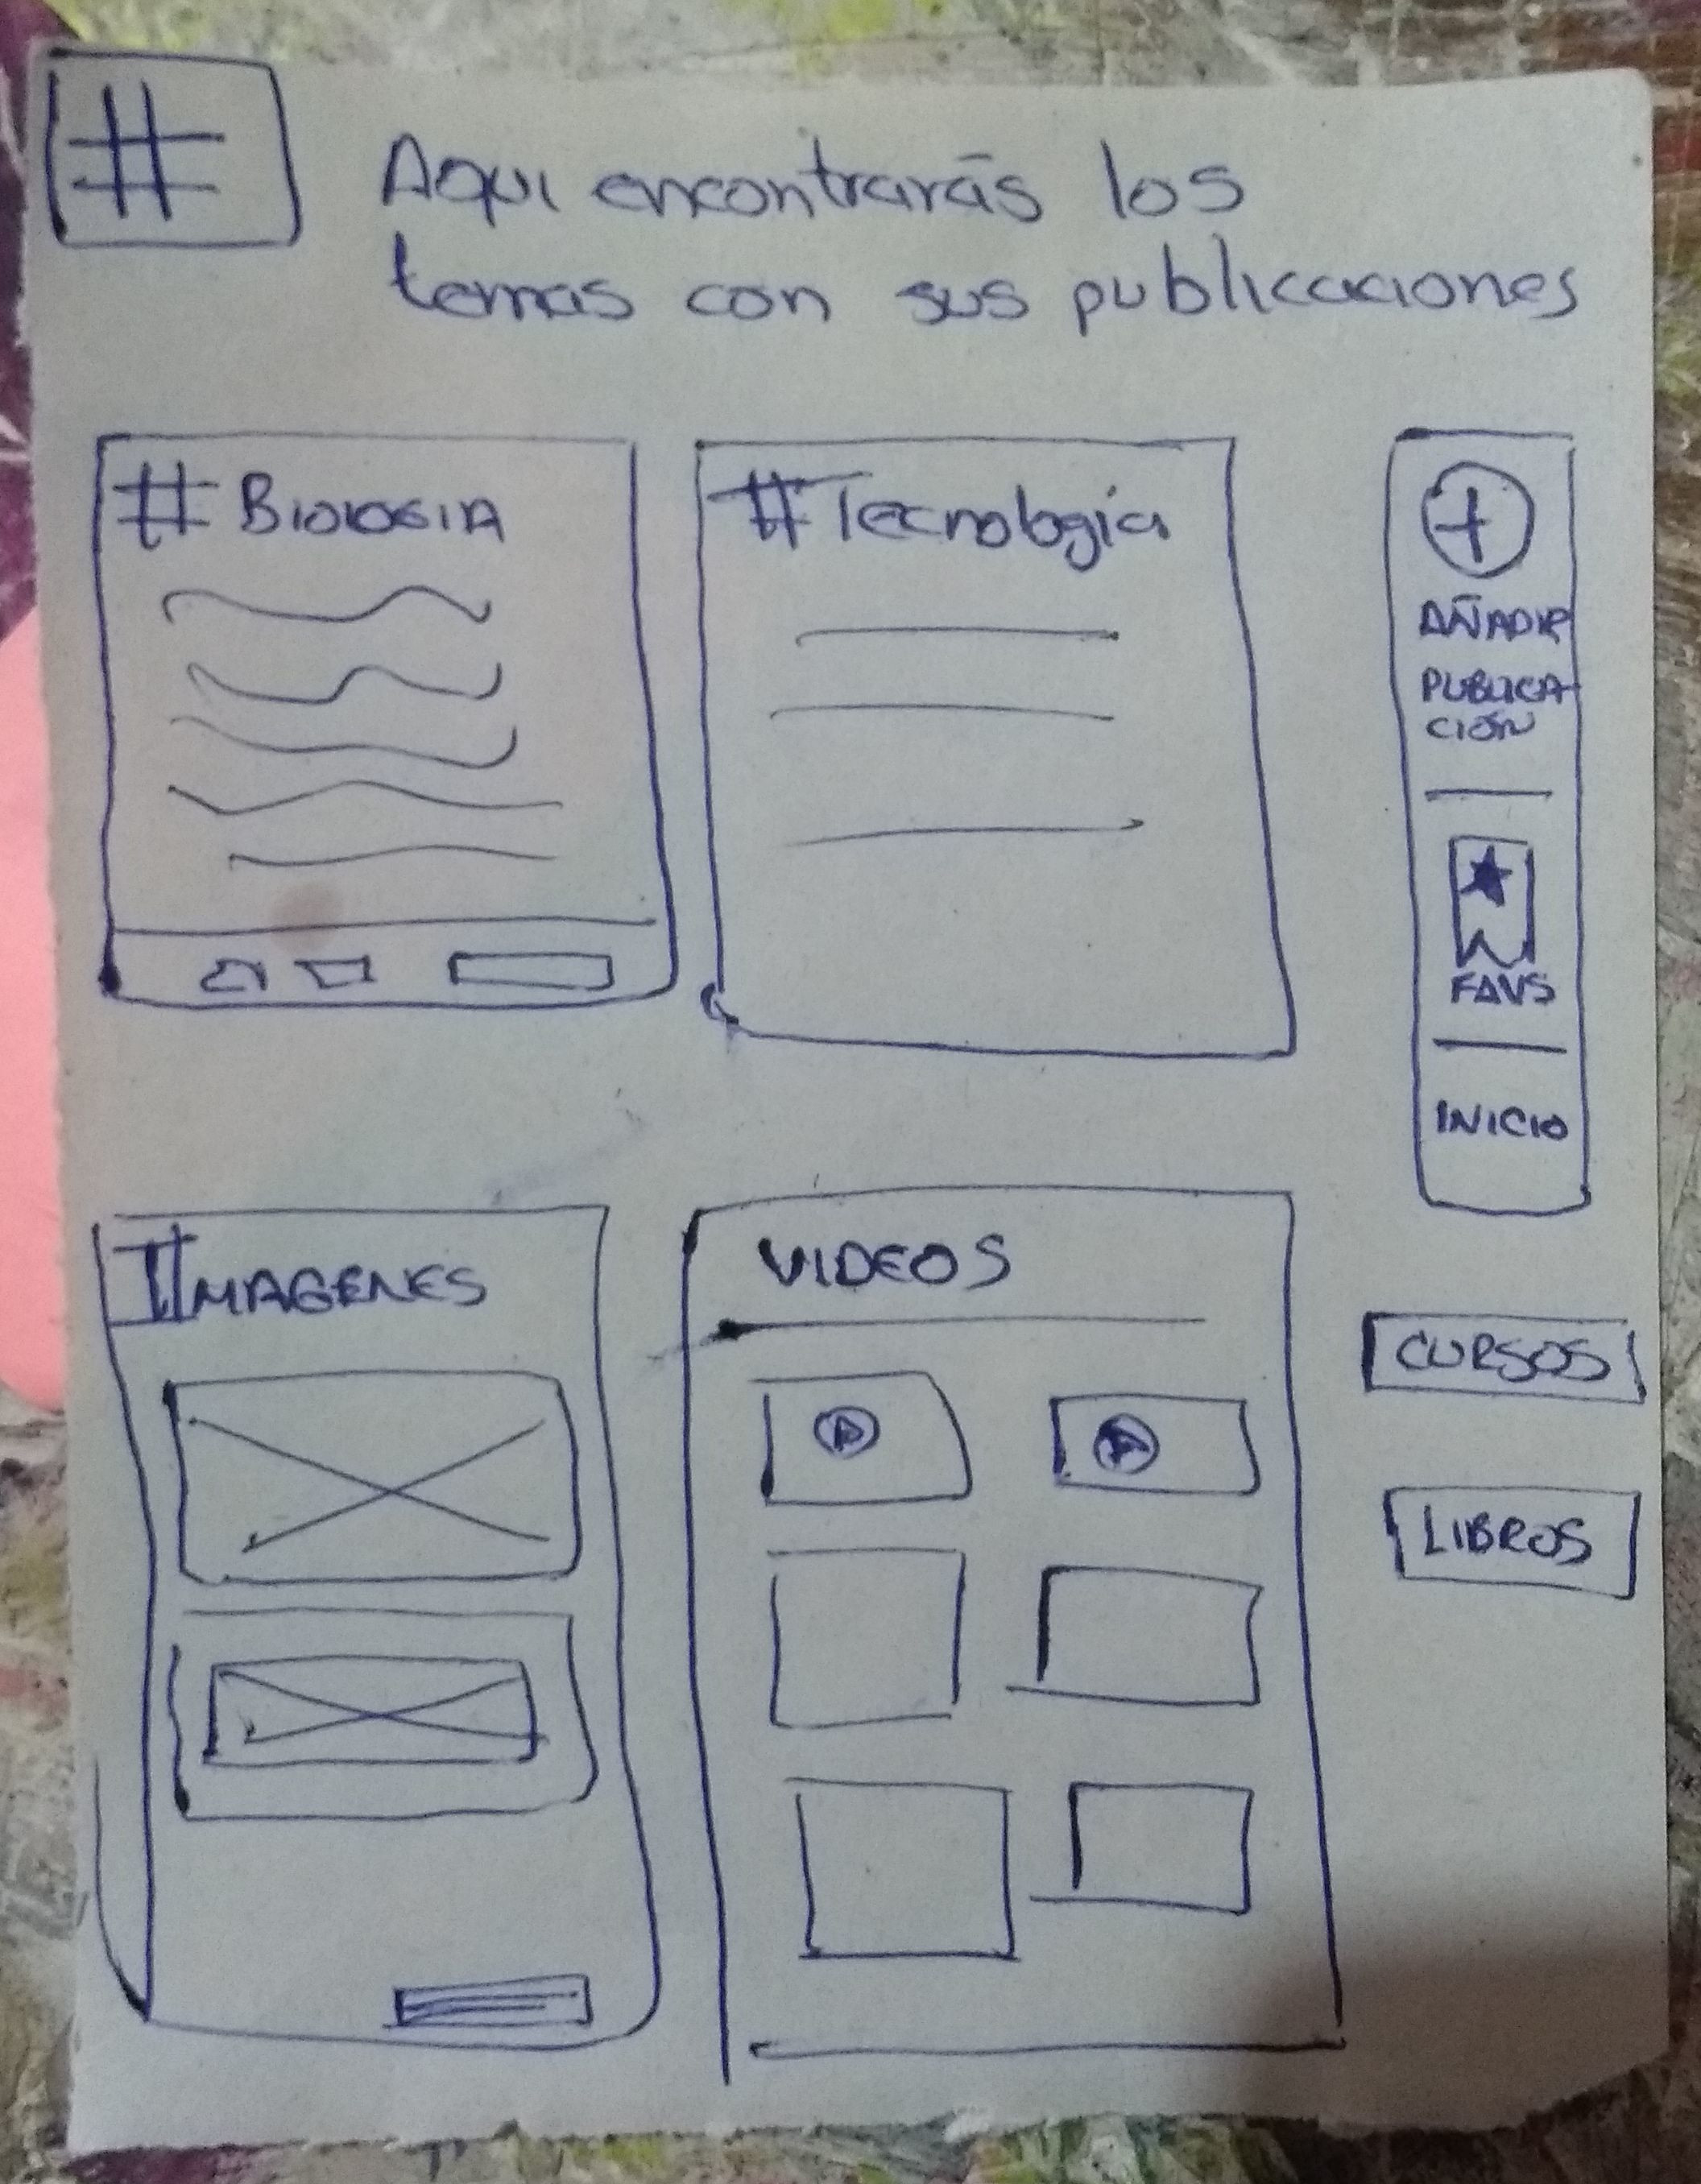 #
Aqui encontrarás los
temas con sus publicaciones
# BIOLOGIA
# Tecnología
AÑADIR
PUBLICA-
CIÓN
FAVS
INICIO
#IMAGENES
VIDEOS
CURSOS
LIBROS